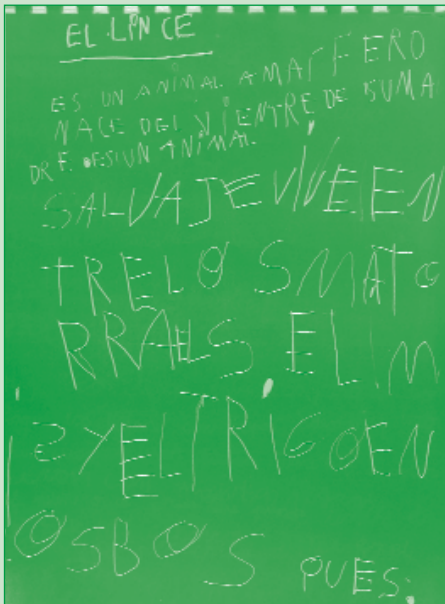 EL LINCE
ES UN ANIMAL AMAIFERO
NACE DEL VIENTRE DE SUMA
DRE. DESIUN ANIMAL
SALVAJE VIVE EN
TRE LOS MATO
RRAELS. EL IM
IZ Y EEL TRIGO EN
LOSBOS PUES.